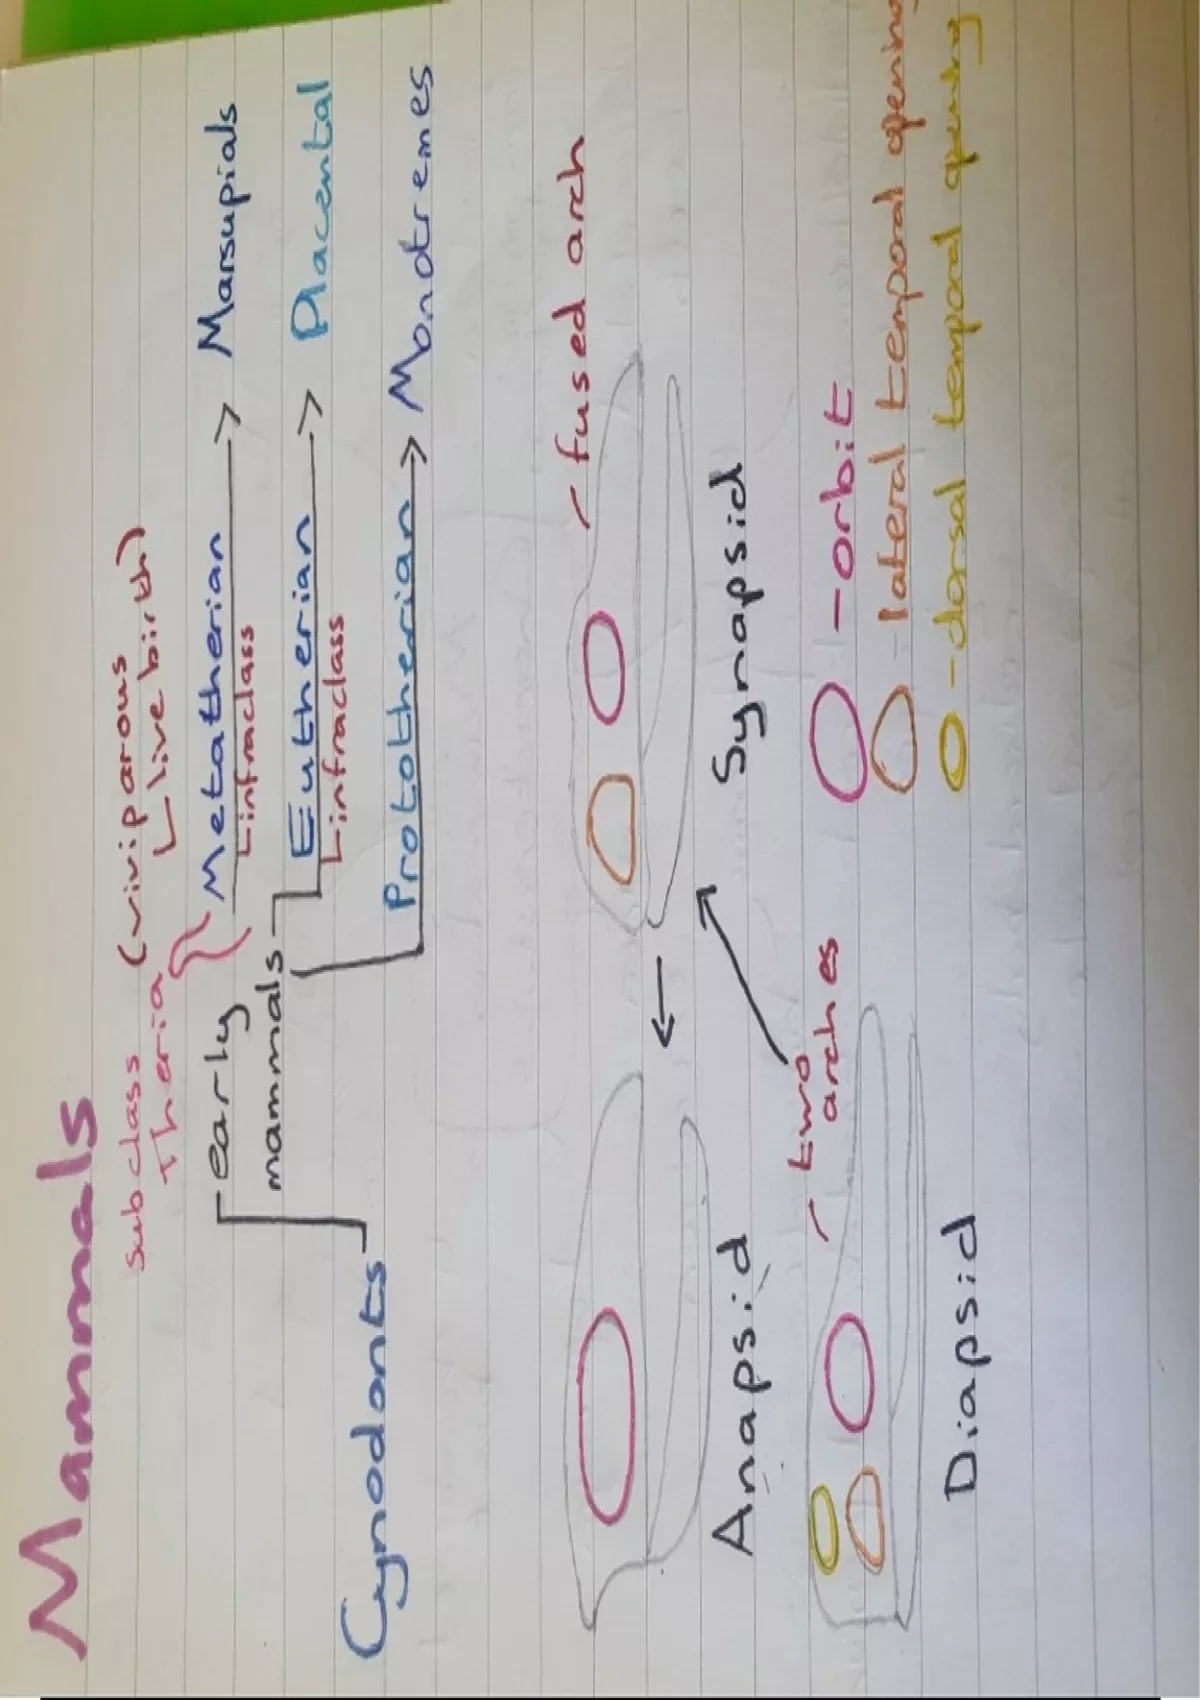 Mammals
subclass (viviparous
Theria
live birth)
early
mammals
Metatherian
infraclass
Marsupials
Eutherian
infraclass
Placental
Cynodonts
Protothérian
Monotremes
fused arch
Anapsid
Synapsid
two
arches
- orbit
- lateral temporal opening
- dorsal temporal opening
Diapsid